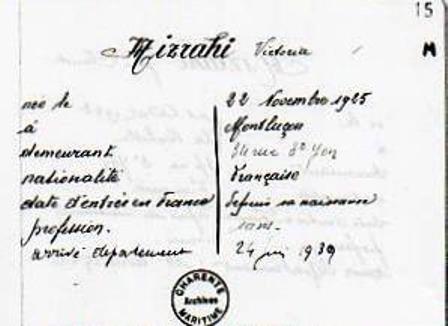 15
Mizrahi Victoria M
née le 22 Novembre 1925
à Montluçon
demeurant 34 rue St Yon
nationalité Française
date d'entrée en France depuis sa naissance
profession. sans.
arrivé département 1939
CHARENTE
Archives
MARITIME